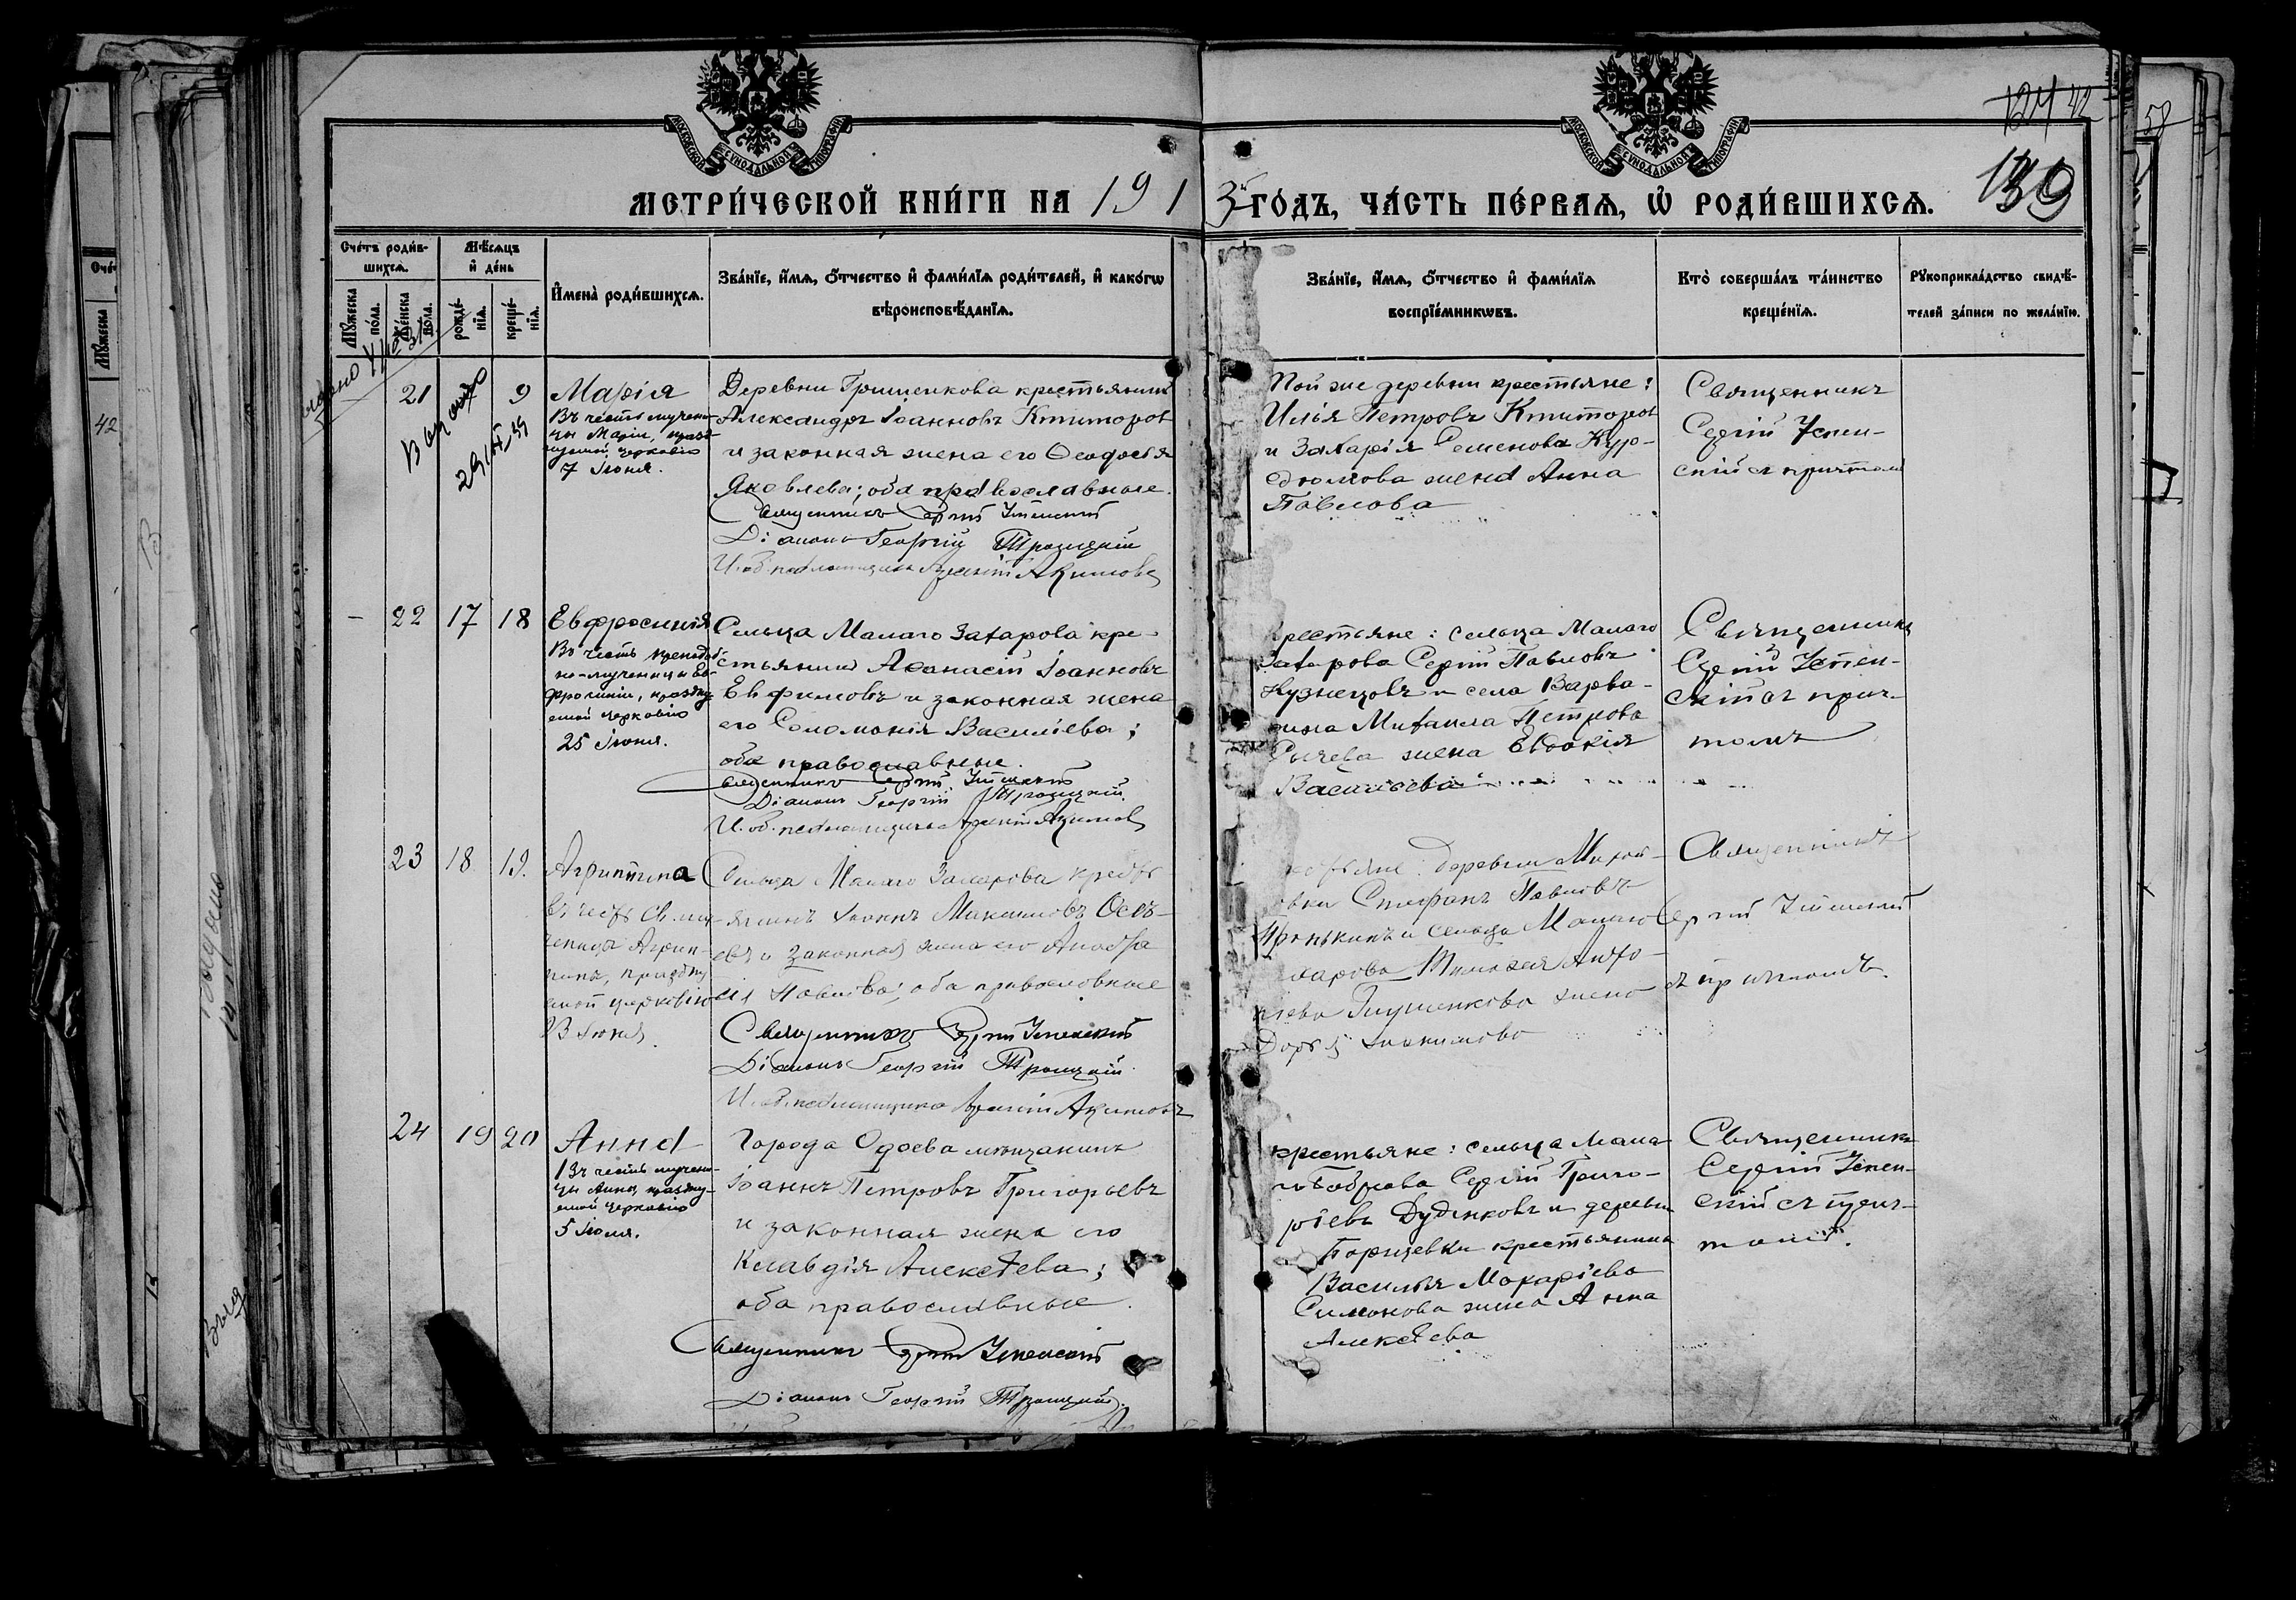 124 42
139
58
МОСКОВСКОЙ СѴНОДАЛЬНОЙ ТИПОГРАФІИ
МОСКОВСКОЙ СѴНОДАЛЬНОЙ ТИПОГРАФІИ
МЕТРИ́ЧЕСКОЙ КНИ́ГИ НА 1913й ГО́ДЪ, ЧА́СТЬ ПЕ́РВАѦ, Ѡ҆ РОДИ́ВШИХСѦ.
Сче́тъ роди́в-
шихсѧ.
Мѣ́сѧцъ
и҆ де́нь
Мꙋ́жеска
по́ла.
Же́нска
по́ла.
рожде́-
нїѧ.
креще́-
нїѧ.
И҆мена̀ роди́вшихсѧ.
Зва́нїе, и҆́мѧ, ѻ҆́тчество и҆ фами́лїѧ роди́телей, и҆ како́гѡ
вѣроисповѣ́данїѧ.
Зва́нїе, и҆́мѧ, ѻ҆́тчество и҆ фами́лїѧ
воспрїе́мникѡвъ.
Кто̀ соверша́лъ та́инство
креще́нїѧ.
Рꙋкоприкла́дство свидѣ́-
телей за́писи по жела́нїю.
21
9
Марія
Въ честь мучени-
цы Маріи, празд-
7 Іюня.
Деревни Гришенкова крестьянинъ
Александръ Іоанновъ Ктиторов
и законная жена его Ѳеодосія
Яковлева; оба православные.
Священникъ Сергій Успенскій
Діаконъ Георгій Троицкій
И. об. псаломщика Акимовъ
Той же деревни крестьяне:
Илья Петровъ Ктиторов
и Захарія Семенова Кур-
дюмова жена Анна
Павлова
Священникъ
Сергій Успен-
скій съ причтомъ
– 22 17 18
Евфросинія
Въ честь преподоб-
но-мученицы Ев-
фросиніи, праздну-
емой церковію
25 Іюня.
Сельца Малаго Захарова кре-
стьянинъ Аѳанасій Іоанновъ
Евфимовъ и законная жена
его Соломонія Васильева;
оба православные.
Священникъ Сергій Успенскій
Діаконъ Георгій Троицкій
И. об. псаломщика Акимовъ
крестьяне: сельца Малаго
Захарова Сергій Павловъ
Кузнецовъ и села Варва-
рина Михаила Петрова
Сычева жена Евдокія
Васильева
Священникъ
Сергій Успен-
скій съ прич-
томъ
23 18 19.
Агриппина
въ честь св. му-
ченицы Агрип-
пины, праздну-
емой церковію
23 Іюня.
Сельца Малаго Захарова кресть-
янинъ Іоаннъ Максимовъ
и законная жена его Анаста-
сія Павлова; оба православные
Священникъ Сергій Успенскій
Діаконъ Георгій Троицкій.
И. об. псаломщика Акимовъ
деревни
Стефанъ Павловъ
и сельца Малаго
Захарова
жена
Дарья
Священникъ
Сергій Успенскій
съ причтомъ.
24 19 20
Анна
Въ честь мучени-
цы Анны, праздну-
емой церковію
5 Іюля.
Города Одоева мѣщанинъ
Іоаннъ Петровъ Григорьевъ
и законная жена его
Клавдія Алексѣева;
оба православные.
Священникъ Сергій Успенскій
Діаконъ Георгій Троицкій.
крестьяне: сельца Мала-
го Боброва Сергій Григо-
рьевъ Дуденковъ и деревни
крестьянина
Василія Макаріева
Симонова жена Анна
Алексѣева
Священникъ
Сергій Успен-
скій съ прич-
томъ.
42